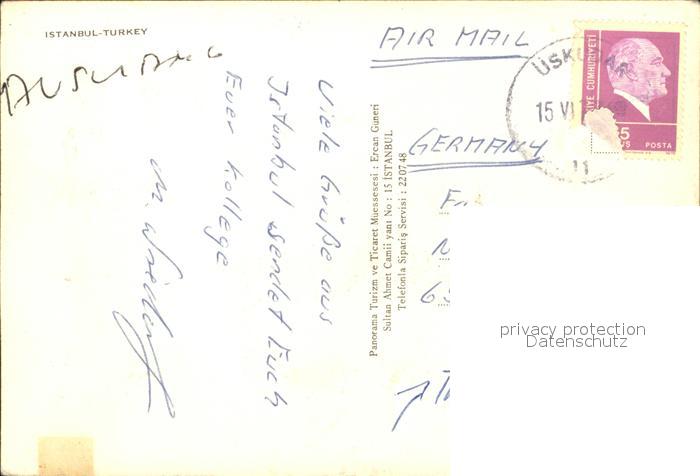 ISTANBUL-TURKEY
AUSLAND
Viele Grüße aus
Istanbul sendet Euch
Euer Kollege
M.
Panorama Turizm ve Ticaret Müessesesi : Ercan Güneri
Sultan Ahmet Camii yanı No : 15 İSTANBUL
Telefonla Sipariş Servisi : 22 07 48
AIR MAIL
GERMANY
ÜSKÜDAR
15 VI
11
CUMHURİYETİ
POSTA
privacy protection
Datenschutz